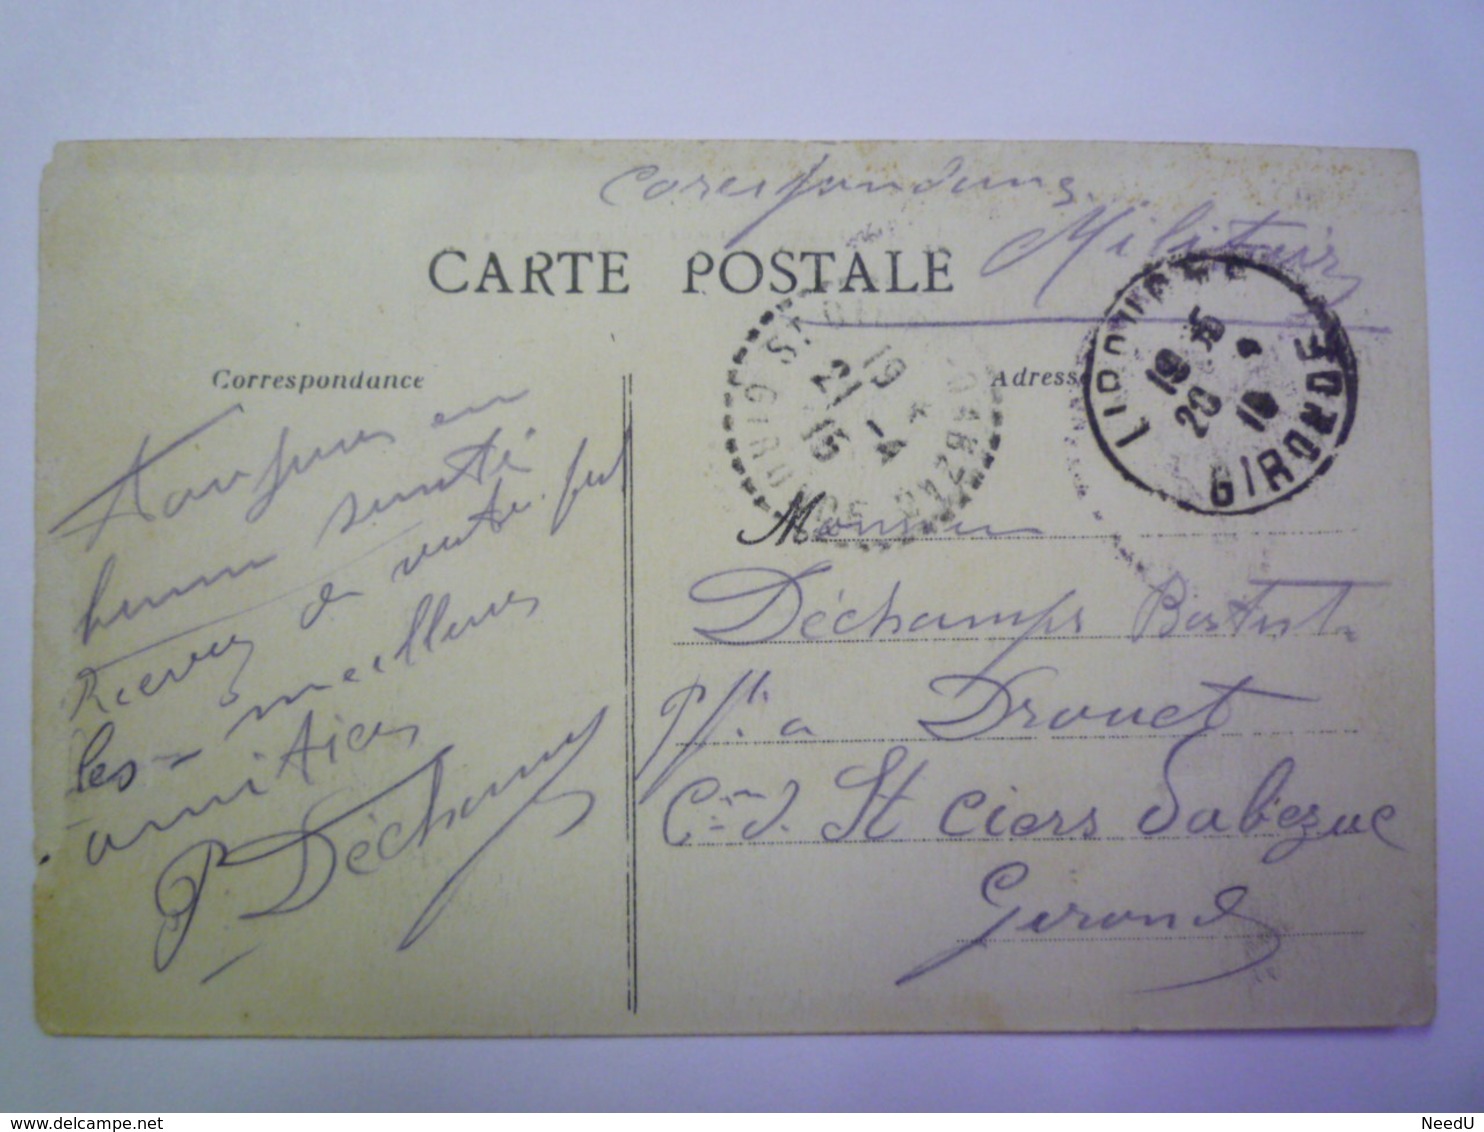 Corespondans
Militair
CARTE POSTALE
Correspondance
Adresse
LIBOURNE
19 15
20 4
15
GIRONDE
19
21 -4
15
GIRONDE
Toujours en
bonne santé
Recevez de votre
les meilleures
amitiers
P Déchamps
Monsieur
Déchamps
a Drouet
Cne d. St Ciers Dabézac
Gironde
www.delcampe.net
NeedU